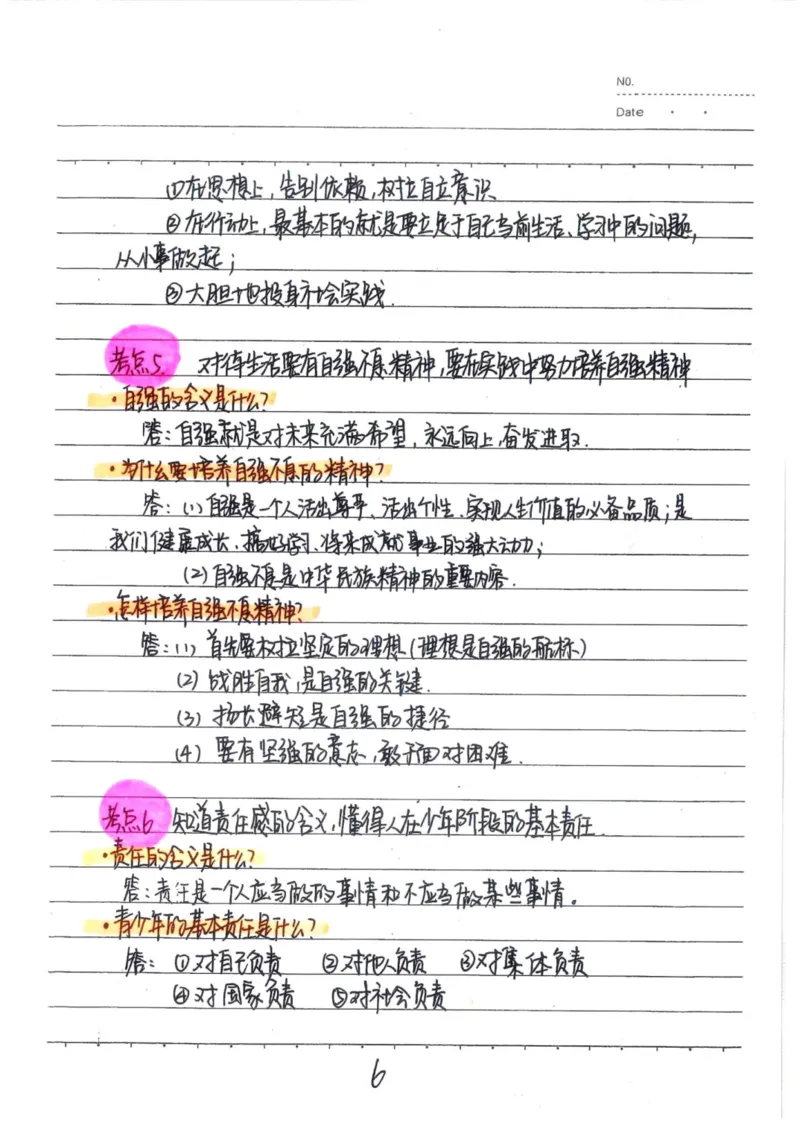 NO.
Date
①在思想上,告别依赖,树立自立意识
②在行动上,最基本的就是要立足于自己当前生活、学习中的问题,
从小事做起;
③大胆地投身社会实践.
考点5. 对待生活要有自强不息精神,要在实践中努力培养自强精神
·自强的含义是什么?
答:自强就是对未来充满希望,永远向上,奋发进取.
·为什么要培养自强不息的精神?
答:(1)自强是一个人活出尊严、活出个性、实现人生价值的必备品质;是
我们健康成长、搞好学习、将来成就事业的强大动力;
(2)自强不息是中华民族精神的重要内容.
·怎样培养自强不息精神?
答:(1) 首先要树立坚定的理想(理想是自强的航标)
(2) 战胜自我,是自强的关键.
(3) 扬长避短是自强的捷径
(4) 要有坚强的意志,敢于面对困难.
考点6 知道责任感的含义,懂得人在少年阶段的基本责任.
·责任的含义是什么?
答:责任是一个人应当做的事情和不应当做某些事情。
·青少年的基本责任是什么?
答: ①对自己负责 ②对他人负责 ③对集体负责
④对国家负责 ⑤对社会负责
6